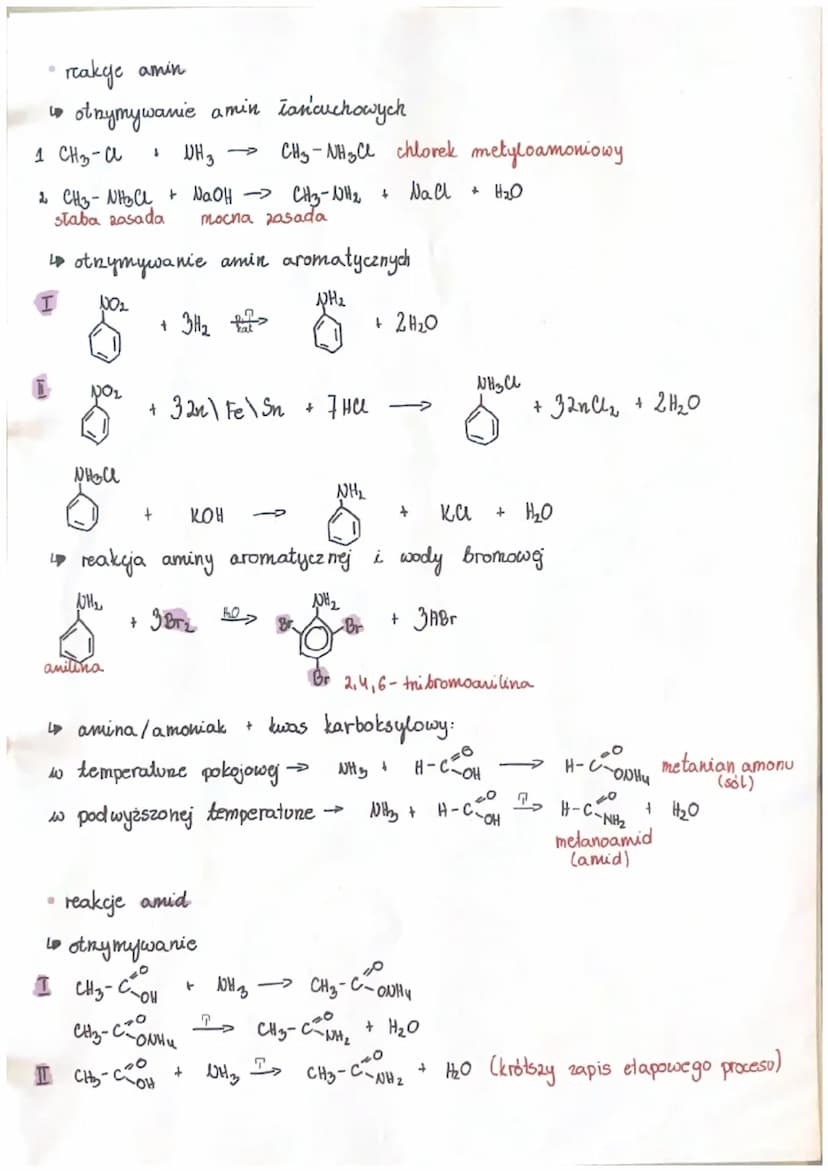 • reakcje amin
↳ otrzymywanie amin łańcuchowych
1 CH₃-Cl + NH₃ → CH₃-NH₃Cl chlorek metyloamoniowy
2 CH₃-NH₃Cl + NaOH → CH₃-NH₂ + NaCl + H₂O
słaba zasada mocna zasada
↳ otrzymywanie amin aromatycznych
I NO₂ + 3H₂ p,T kat → NH₂ + 2H₂O
II NO₂ + 3Zn\Fe\Sn + 7HCl → NH₃Cl + 3ZnCl₂ + 2H₂O
NH₃Cl + KOH → NH₂ + KCl + H₂O
↳ reakcja aminy aromatycznej i wody bromowej
NH₂ + 3Br₂ H₂O → NH₂ Br Br Br + 3HBr
anilina 2,4,6-tribromoanilina
↳ amina/amoniak + kwas karboksylowy:
w temperaturze pokojowej → NH₃ + H-C=O-OH → H-C=O-ONH₄ metanian amonu
(sól)
w podwyższonej temperaturze → NH₃ + H-C=O-OH T→ H-C=O-NH₂ + H₂O
metanoamid
(amid)
• reakcje amid
↳ otrzymywanie
I CH₃-C=O-OH + NH₃ → CH₃-C=O-ONH₄
CH₃-C=O-ONH₄ T→ CH₃-C=O-NH₂ + H₂O
II CH₃-C=O-OH + NH₃ T→ CH₃-C=O-NH₂ + H₂O (krótszy zapis etapowego procesu)